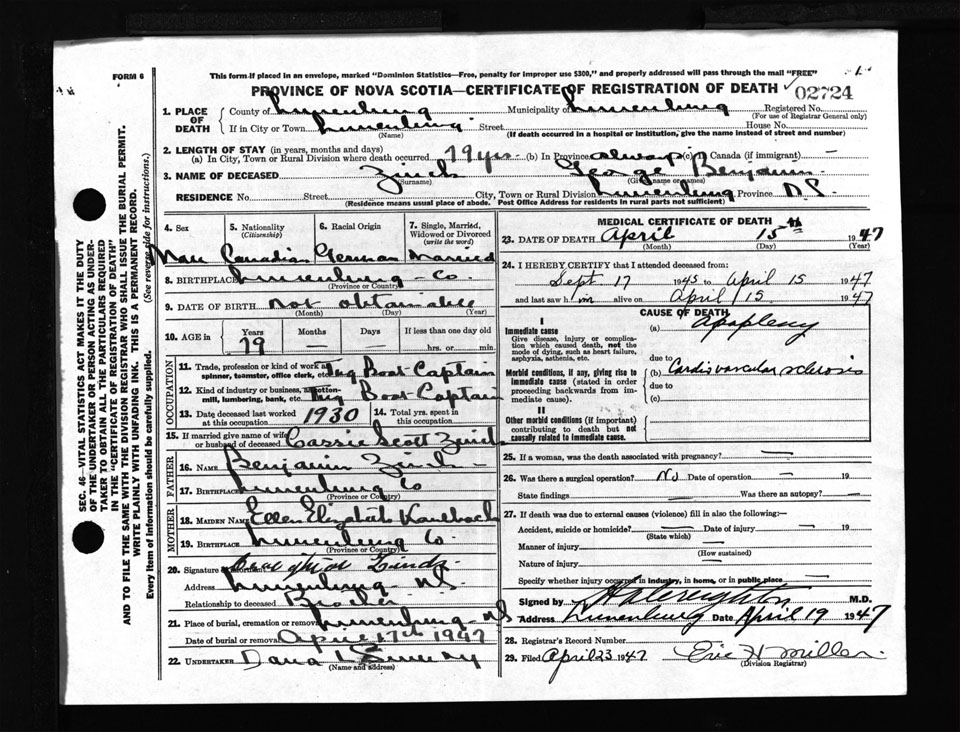 FORM 6
This form if placed in an envelope, marked "Dominion Statistics—Free, penalty for improper use $300," and properly addressed will pass through the mail "FREE"
PROVINCE OF NOVA SCOTIA—CERTIFICATE OF REGISTRATION OF DEATH 02724
1. PLACE OF DEATH
County of Lunenburg Municipality of Lunenburg Registered No.
(For use of Registrar General only)
If in City or Town Lunenburg Street House No.
(Name) (If death occurred in a hospital or institution, give the name instead of street and number)
2. LENGTH OF STAY (in years, months and days)
(a) In City, Town or Rural Division where death occurred 79 yrs (b) In Province always (c) In Canada (if immigrant) —
3. NAME OF DECEASED Zinck George Benjamin
(Surname) (Given name or names)
RESIDENCE No. Street City, Town or Rural Division Lunenburg Province N.S.
(Residence means usual place of abode. Post Office Address for residents in rural parts not sufficient)
4. Sex 5. Nationality (Citizenship) 6. Racial Origin 7. Single, Married, Widowed or Divorced (write the word)
Male Canadian German Married
8. BIRTHPLACE Lunenburg - Co.
(Province or Country)
9. DATE OF BIRTH Not obtainable
(Month) (Day) (Year)
10. AGE in Years Months Days If less than one day old
79 — — hrs. or min.
OCCUPATION
11. Trade, profession or kind of work as spinner, teamster, office clerk, etc. Tug Boat Captain
12. Kind of industry or business, as cotton-mill, lumbering, bank, etc. Tug Boat Captain
13. Date deceased last worked at this occupation 1930 14. Total yrs. spent in this occupation
15. If married give name of wife or husband of deceased Cassie Scott Zinck
FATHER
16. NAME Benjamin Zinck
17. BIRTHPLACE Lunenburg Co
(Province or Country)
MOTHER
18. MAIDEN NAME Ellen Elizabeth Kaulback
19. BIRTHPLACE Lunenburg Co.
(Province or Country)
20. Signature of informant Zinck
Address Lunenburg N.S.
Relationship to deceased Brother
21. Place of burial, cremation or removal Lunenburg N.S.
Date of burial or removal April 17th 1947
22. UNDERTAKER Dana L Sweeny
(Name and address)
MEDICAL CERTIFICATE OF DEATH
23. DATE OF DEATH April 15th 1947
(Month) (Day) (Year)
24. I HEREBY CERTIFY that I attended deceased from:
Sept. 17 1945 to April 15 1947
and last saw him alive on April 15 1947
CAUSE OF DEATH
I
Immediate cause
Give disease, injury or complication which caused death, not the mode of dying, such as heart failure, asphyxia, asthenia, etc.
(a) Apoplexy
due to
Morbid conditions, if any, giving rise to immediate cause (stated in order proceeding backwards from immediate cause).
(b) Cardiovascular sclerosis
due to
(c)
II
Other morbid conditions (if important) contributing to death but not causally related to immediate cause.
25. If a woman, was the death associated with pregnancy? —
26. Was there a surgical operation? No Date of operation — 19
State findings Was there an autopsy? —
27. If death was due to external causes (violence) fill in also the following:—
Accident, suicide or homicide? — Date of injury — 19
(State which)
Manner of injury
(How sustained)
Nature of injury
Specify whether injury occurred in industry, in home, or in public place
Signed by H A Creighton M.D.
Lunenburg Date April 19 1947
28. Registrar's Record Number
29. Filed April 23 1947 Eric H Miller
(Division Registrar)
SEC. 46—VITAL STATISTICS ACT MAKES IT THE DUTY
OF THE UNDERTAKER OR PERSON ACTING AS UNDER-
TAKER TO OBTAIN ALL THE PARTICULARS REQUIRED
IN THE "CERTIFICATE OF REGISTRATION OF DEATH"
AND TO FILE THE SAME WITH THE DIVISION REGISTRAR WHO SHALL ISSUE THE BURIAL PERMIT.
WRITE PLAINLY WITH UNFADING INK. THIS IS A PERMANENT RECORD.
Every item of information should be carefully supplied. (See reverse side for instructions.)